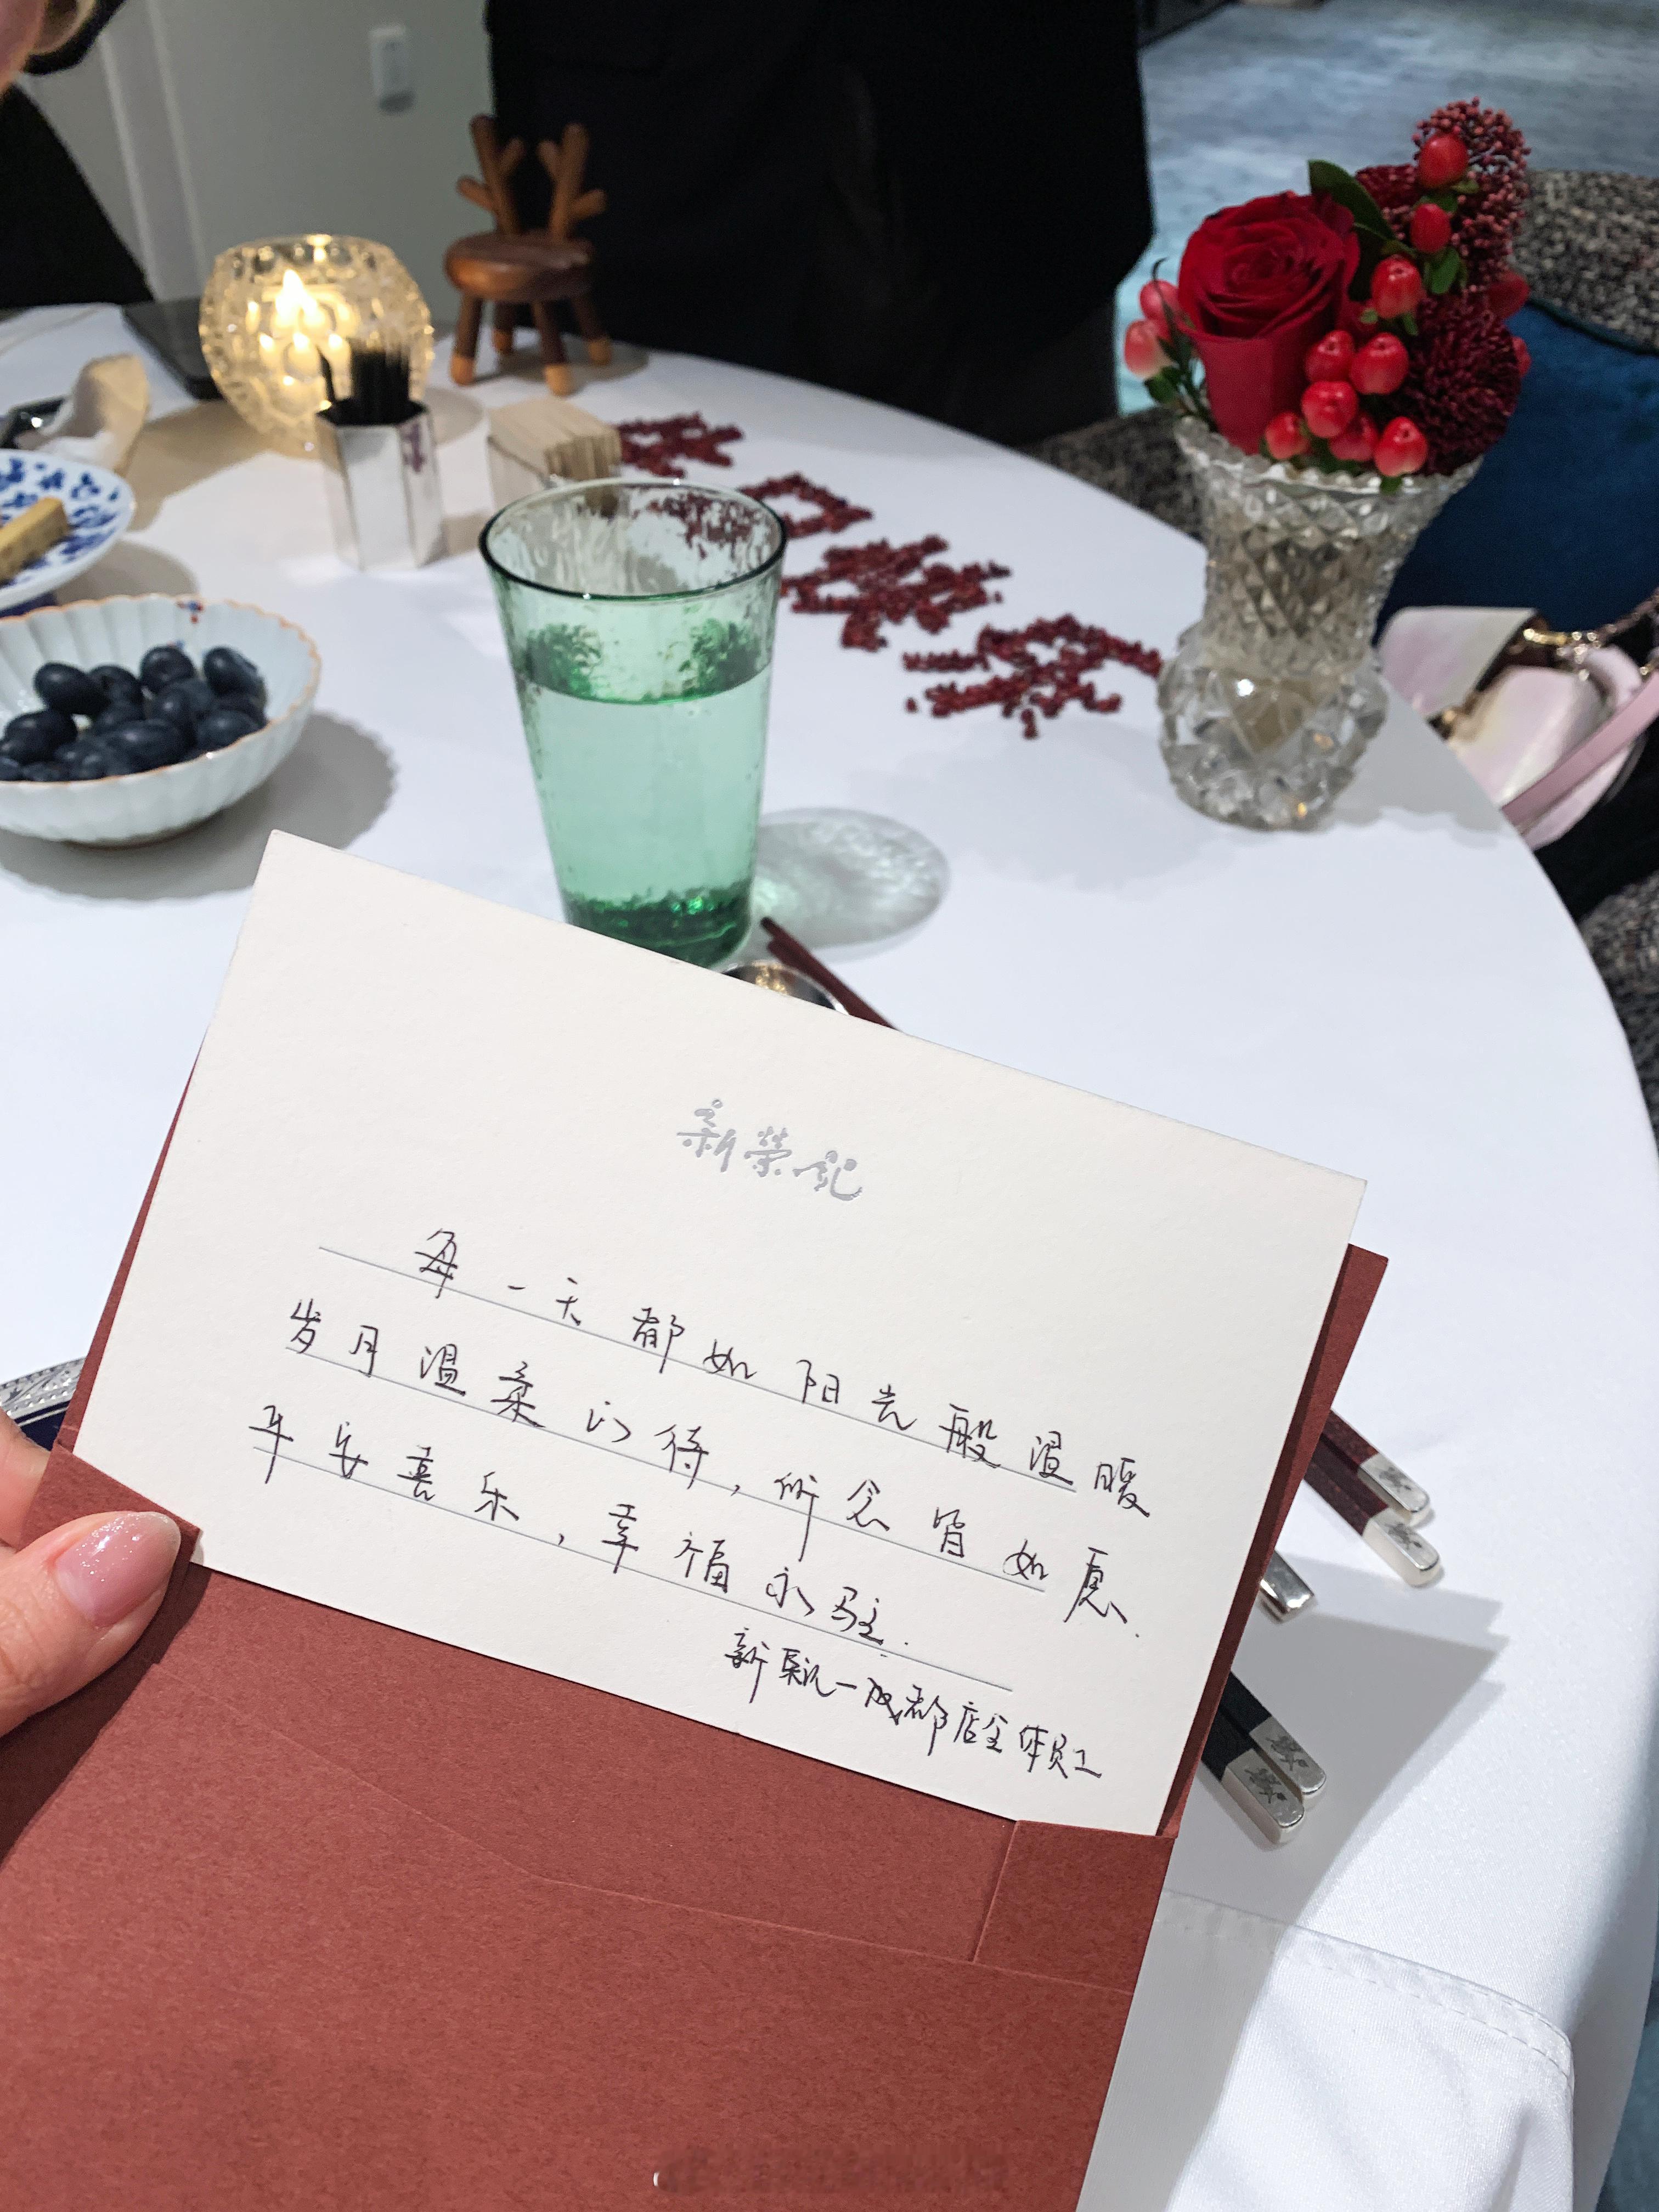 新榮記
每一天都如阳光般温暖
岁月温柔以待,所念皆如愿.
平安喜乐,幸福永驻.
新荣记一成都店全体员工